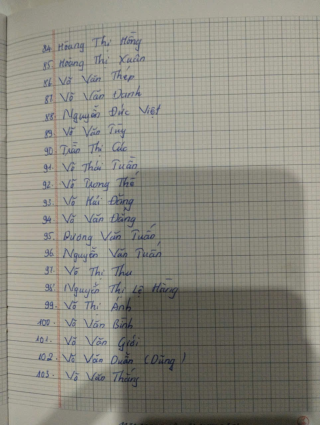 84. Hoàng Thị Hồng
85. Hoàng Thị Xuân
86. Võ Văn Thép
87. Võ Văn Danh
88. Nguyễn Đức Việt
89. Võ Văn Tùy
90. Trần Thị Cúc
91. Võ Thái Tuấn
92. Võ Trọng Thế
93. Võ Hải Đăng
94. Võ Văn Đẳng
95. Dương Văn Tuấn
96. Nguyễn Văn Tuấn
97. Võ Thị Thu
98. Nguyễn Thị Lệ Hằng
99. Võ Thị Ánh
100. Võ Văn Bình
101. Võ Văn Giải
102. Võ Văn Duẫn (Dũng)
103. Võ Văn Thắng